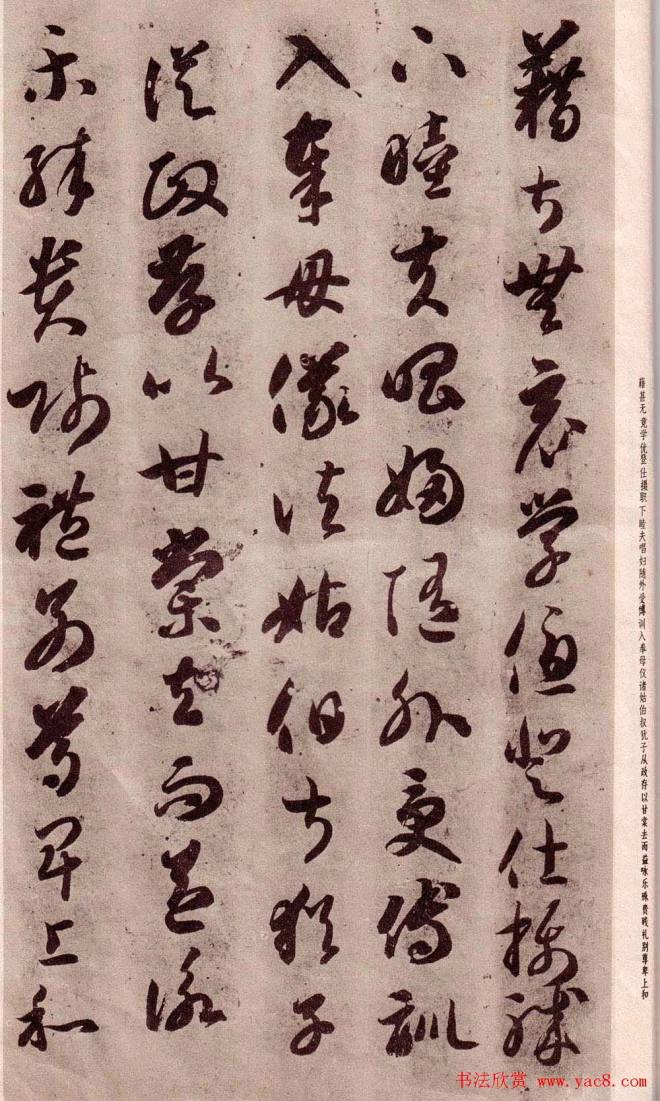 藉甚無竟學優登仕攝職
下睦夫唱婦隨外受傅訓
入奉母儀諸姑伯叔猶子
從政存以甘棠去而益詠
樂殊貴賤禮別尊卑上和
藉甚无竟学优登仕摄职下睦夫唱妇随外受傅训入奉母仪诸姑伯叔犹子从政存以甘棠去而益咏乐殊贵贱礼别尊卑上和
书法欣赏 www.yac8.com